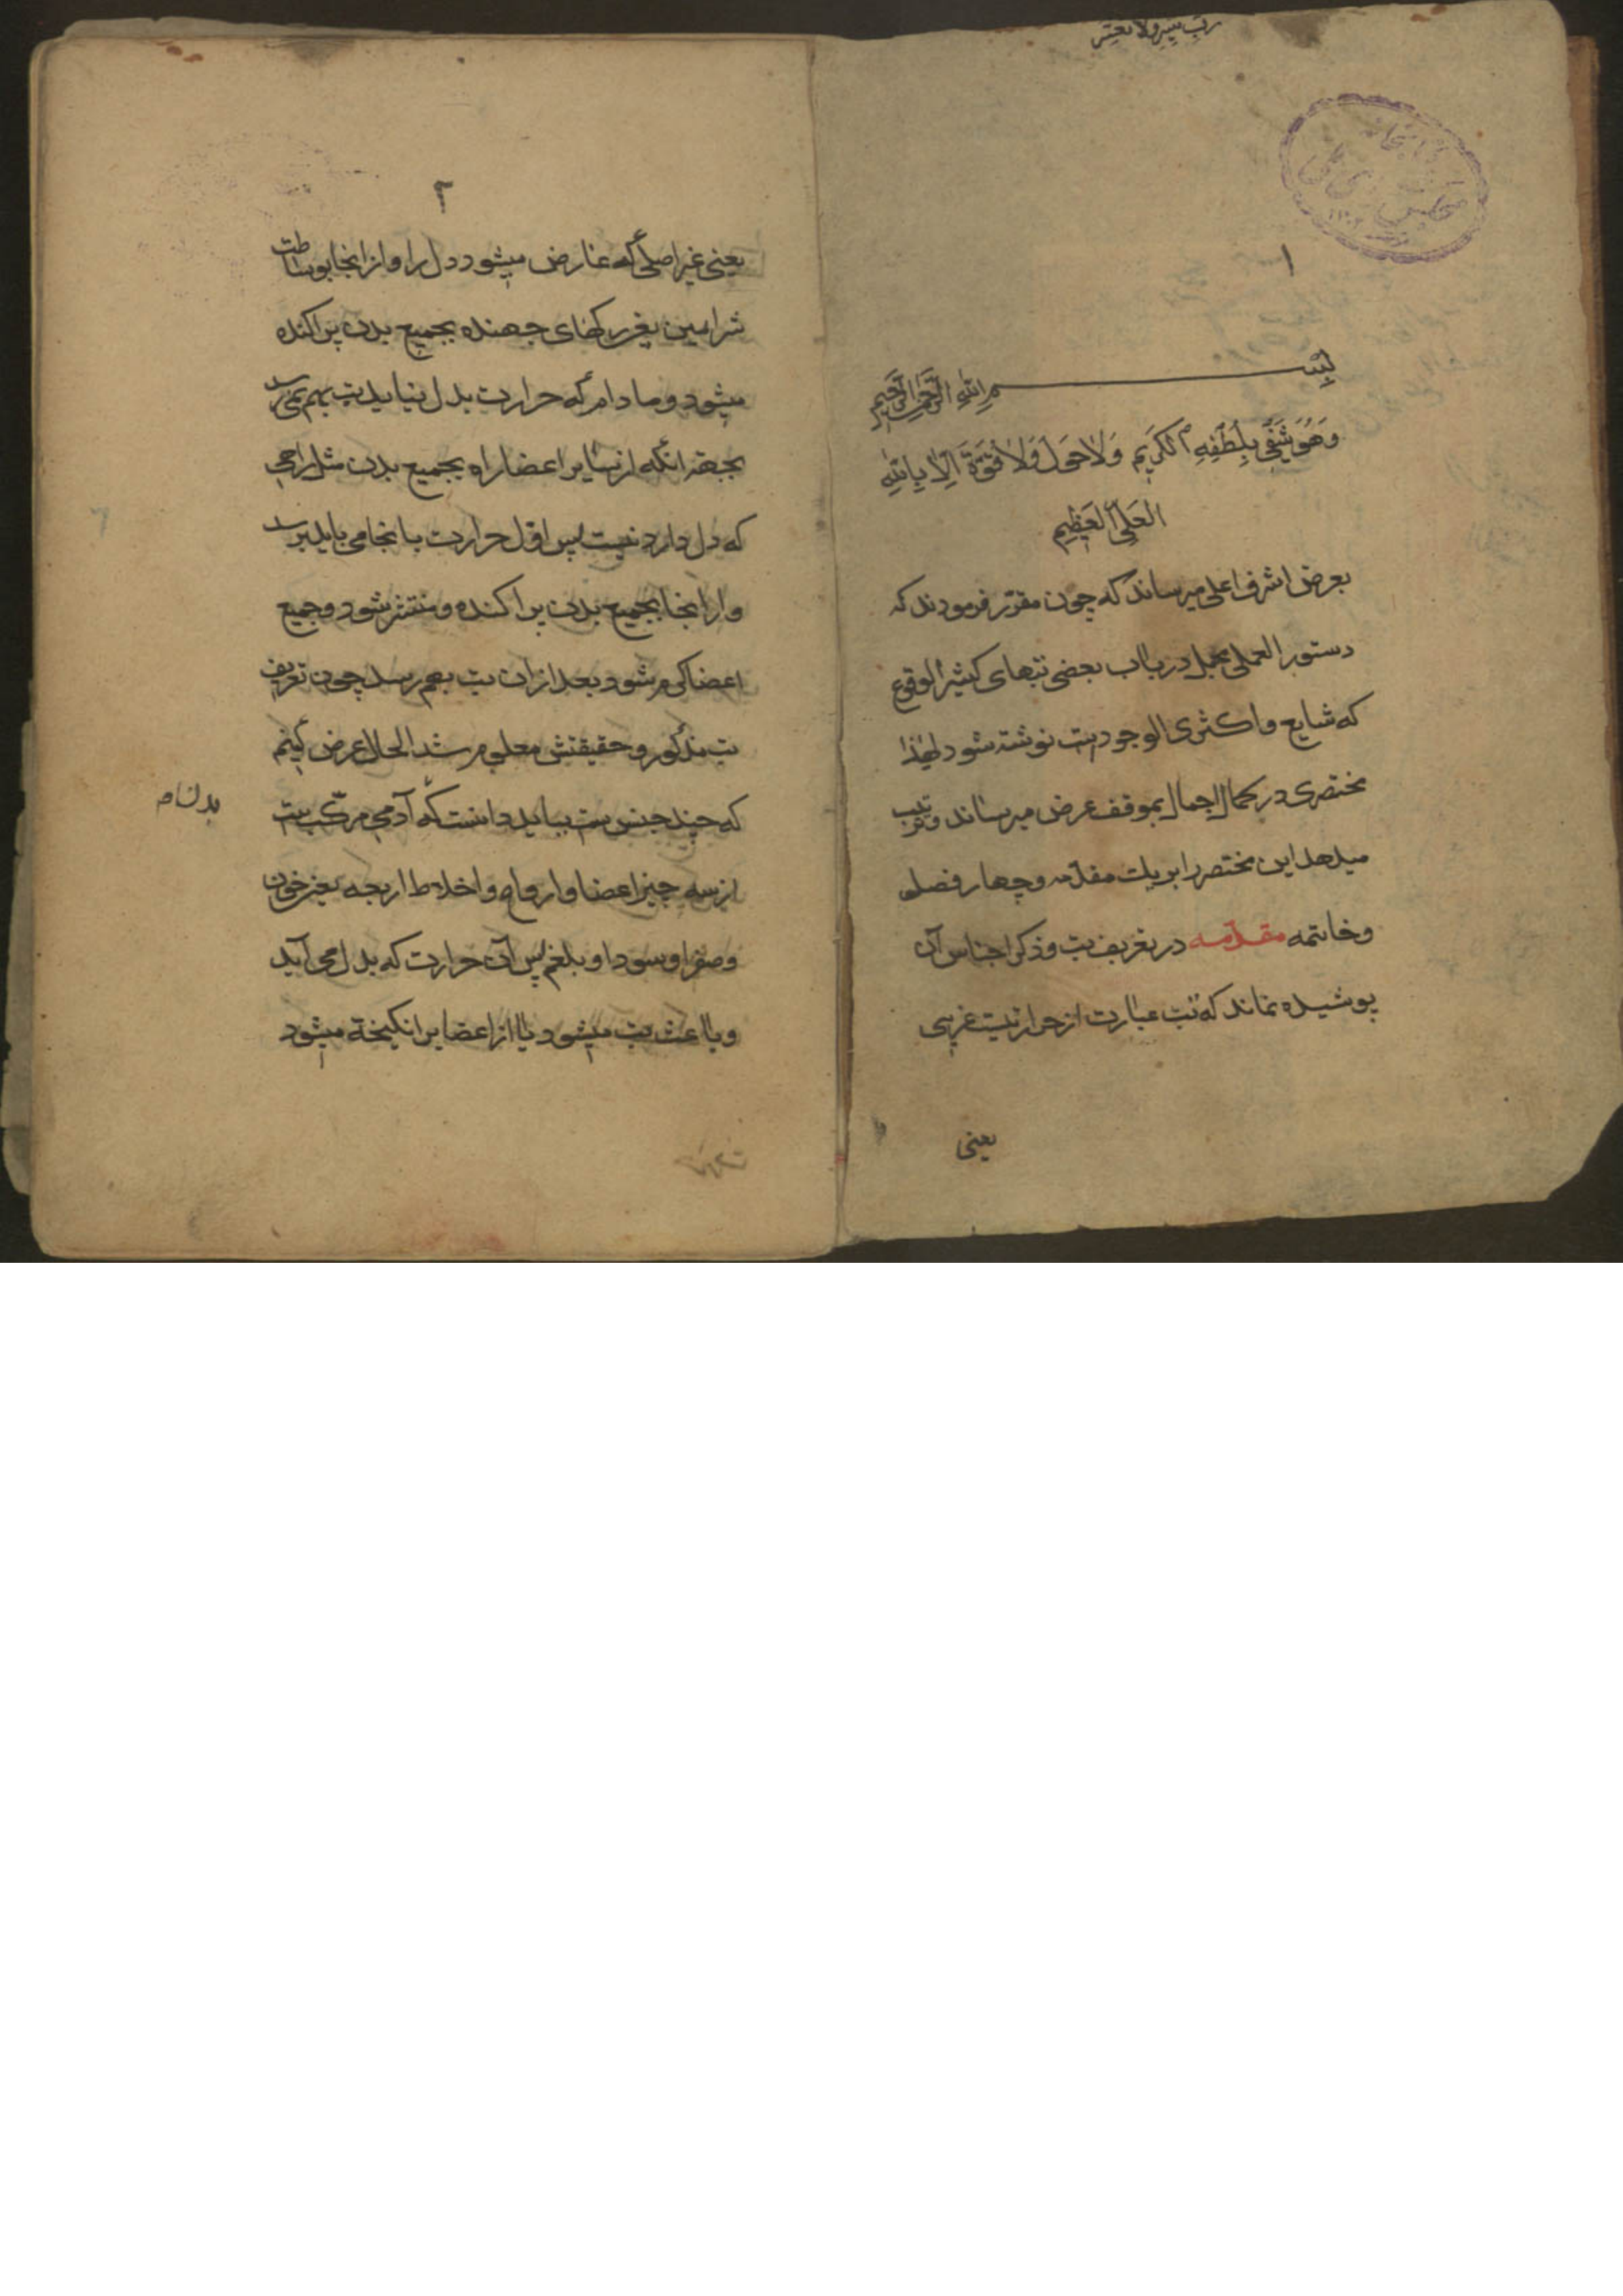 رب یسر ولا تعسر
۱
بسم الله الرحمن الرحیم
وهو یشفی بلطفه الکریم ولا حول ولا قوة الا بالله
العلی العظیم
بعرض اشرف اعلی میرساند که چون مقرر فرمودند که
دستور العملی مجمل در باب بعضی تبهای کثیر الوقوع
که شایع و اکثری الوجودست نوشته شود لهذا
مختصری در کمال اجمال بموقف عرض میرساند و ترتیب
میدهد این مختصر را بر یک مقدمه و چهار فصل
و خاتمه مقدمه در تعریف تب و ذکر اجناس آن
پوشیده نماند که تب عبارت از حرارتیست غریبی
یعنی
۲
یعنی غیر اصلی که عارض میشود دل را و از انجا بوساطت
شرایین یعنی رکهای جهنده بجمیع بدن پراکنده
میشود و مادام که حرارت بدل نیاید تب بهم نمیرسد
بجهة انکه از سایر اعضا راه بجمیع بدن مثل راهی
که دل دارد نیست پس اول حرارت بانجا می باید برسد
و از انجا بجمیع بدن پراکنده و منتشر شود و جمیع
اعضا کرم شود بعد ازان تب بهم رسد چون تعریف
تب مذکور و حقیقتش معلوم شد الحال عرض کنیم
که چند جنس ست بباید دانست که آدمی مرکب ست
از سه چیز اعضا و ارواح و اخلاط اربعه یعنی خون
و صفرا و سودا و بلغم پس آن حرارت که بدل می آید
و باعث تب میشود یا از اعضا بر انکیخته میشود